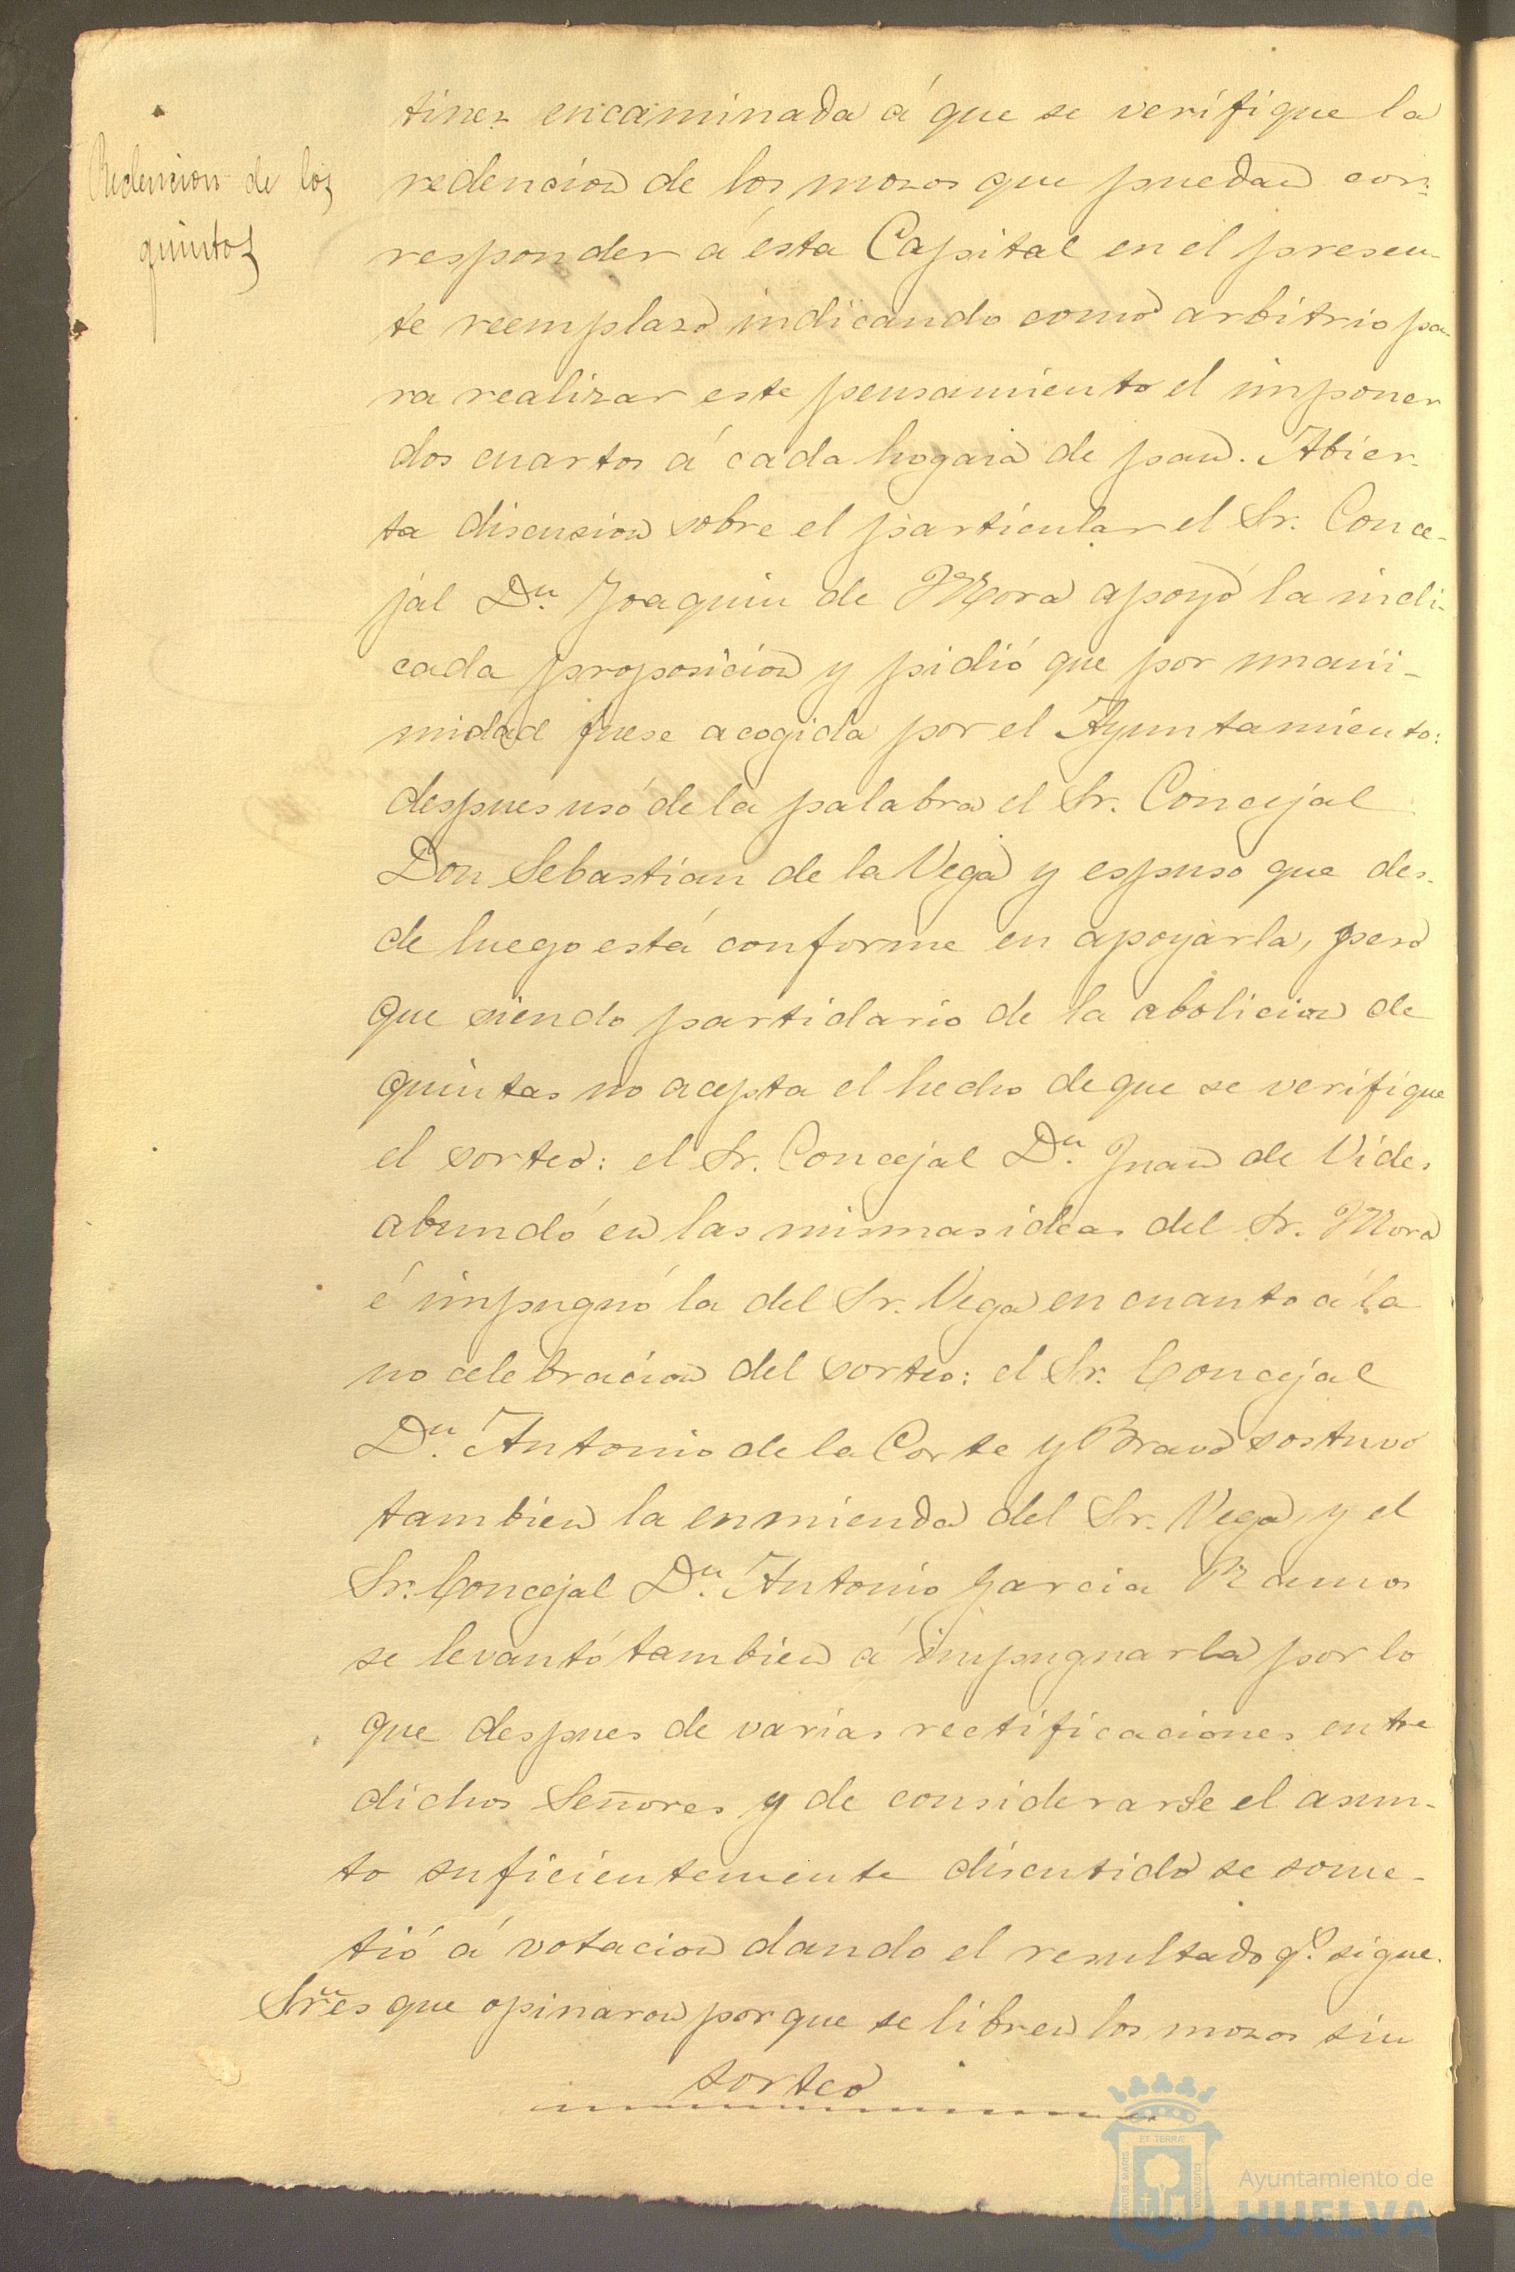 Redencion de los
quintos
tinez encaminada á que se verifique la
redencion de los mozos que puedan cor-
responder á esta Capital en el presen-
te reemplazo indicando como arbitrio pa-
ra realizar este pensamiento el imponer
dos cuartos á cada hogaza de pan. Abier-
ta discusion sobre el particular el Sr. Conce-
jal Dn. Joaquin de Mora apoyó la indi-
cada proposicion y pidió que por unani-
midad fuese acogida por el Ayuntamiento:
despues usó de la palabra el Sr. Concejal
Don Sebastian de la Vega y espuso que des-
de luego está conforme en apoyarla, pero
que siendo partidario de la abolicion de
quintas no acepta el hecho de que se verifique
el sorteo: el Sr. Concejal Dn. Juan de Vides
abundó en las mismas ideas del Sr. Mora
é impugnó la del Sr. Vega en cuanto á la
no celebracion del sorteo: el Sr. Concejal
Dn. Antonio de la Corte y Bravo sostuvo
tambien la enmienda del Sr. Vega, y el
Sr. Concejal Dn. Antonio Garcia Ramos
se levantó tambien á impugnarla por lo
que despues de varias rectificaciones entre
dichos Señores y de considerarse el asun-
to suficientemente discutido se some-
tió á votacion dando el resultado qe. sigue.
Sres que opinaron por que se libren los mozos sin
sorteo
ET TERRÆ
PORTUS MARIS
CUSTODIA
Ayuntamiento de
HUELVA